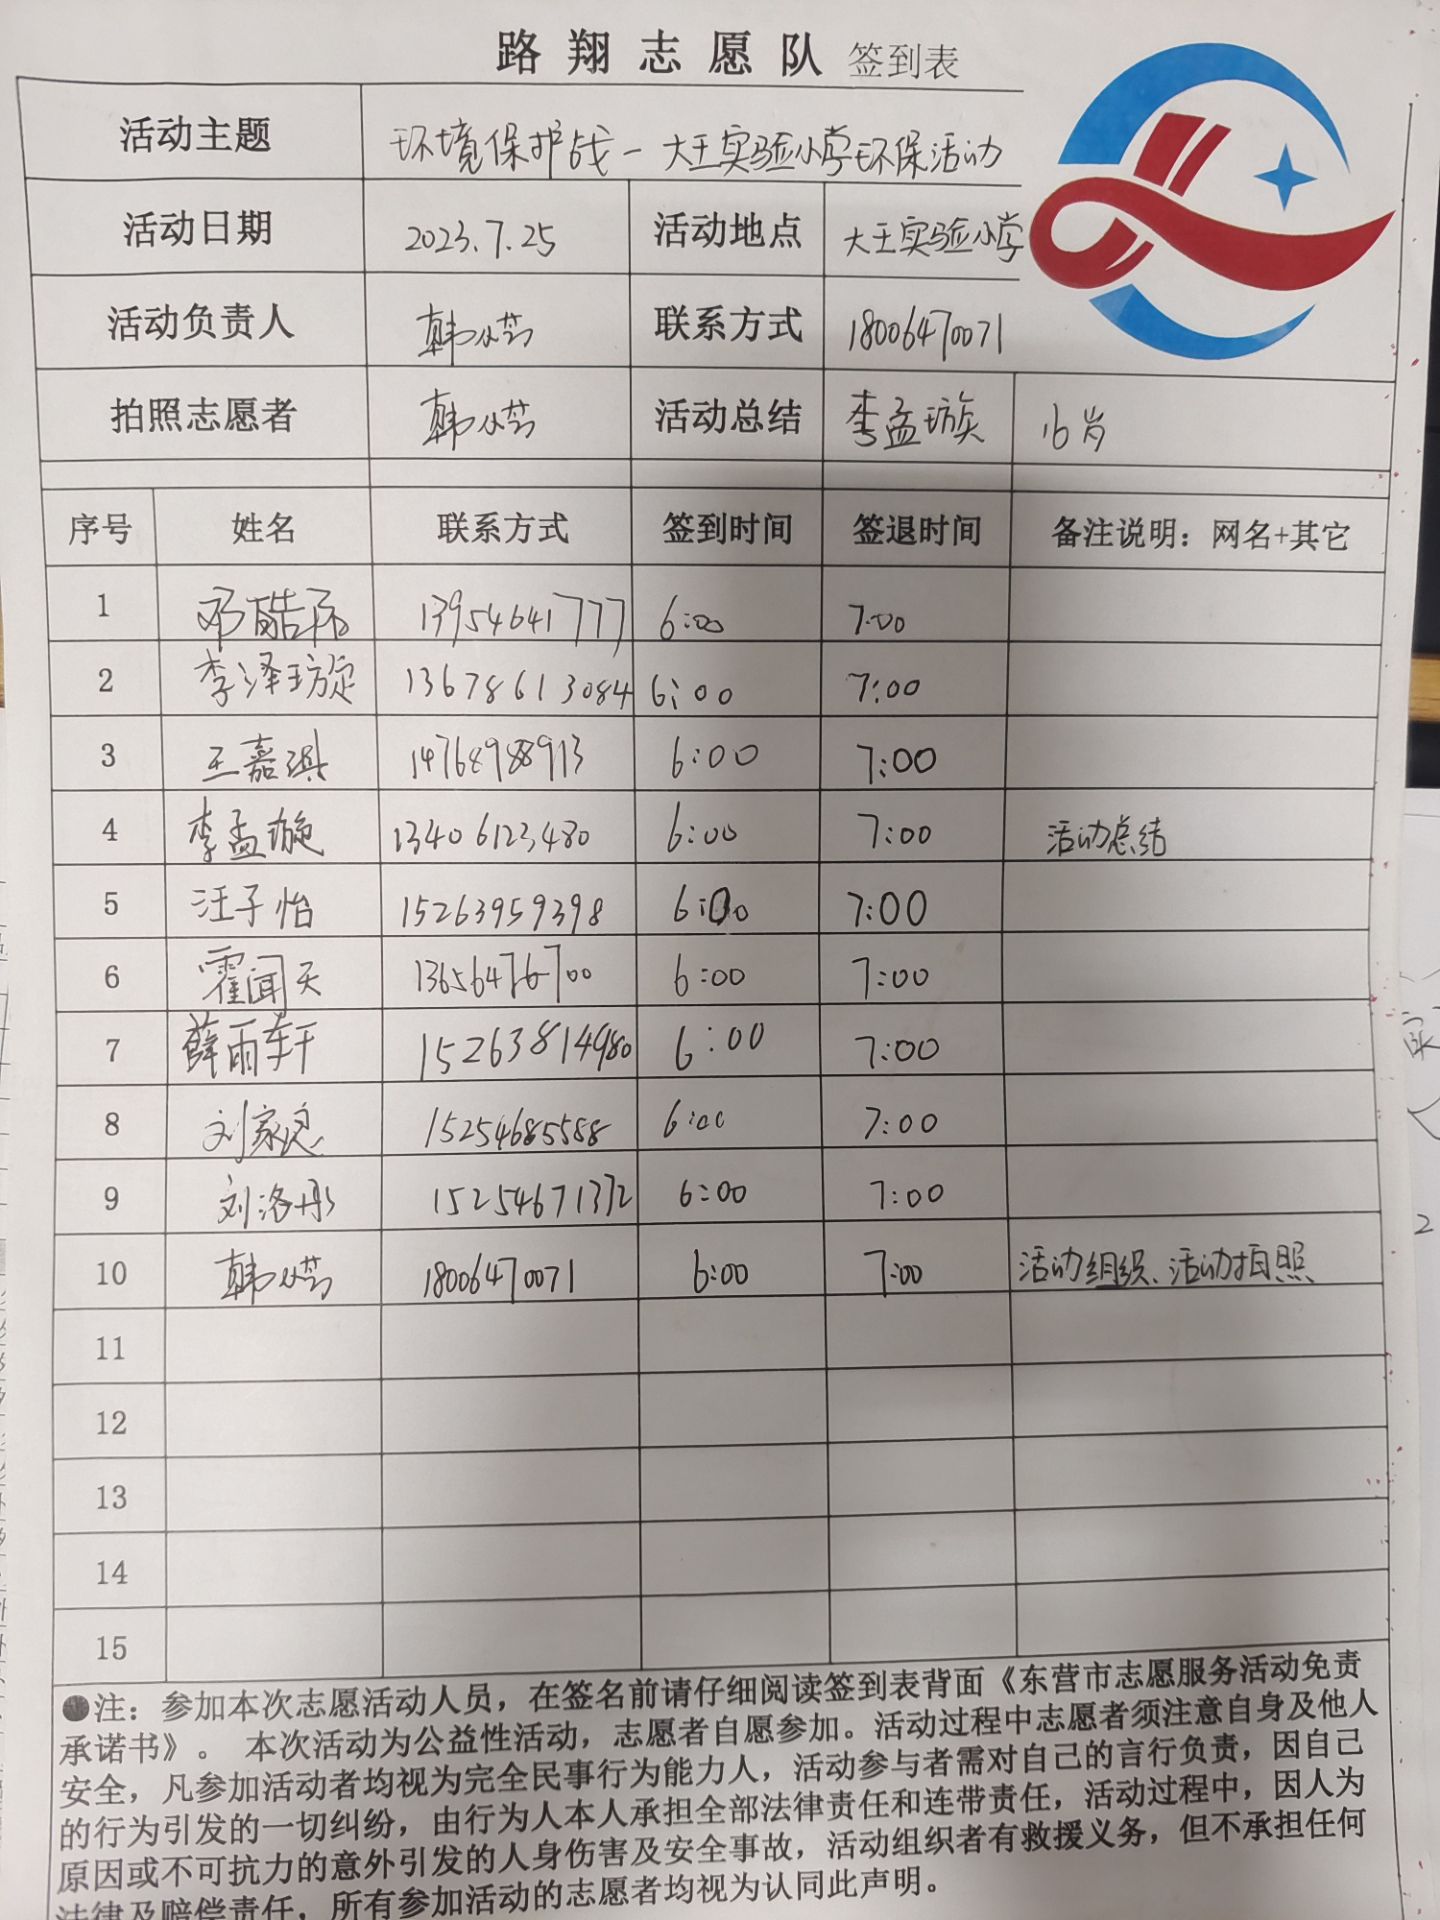 路翔志愿队 签到表
活动主题 环境保护战-大王实验小学环保活动
活动日期 2023.7.25 活动地点 大王实验小学
活动负责人 韩 联系方式 18006470071
拍照志愿者 韩 活动总结 李孟璇 16岁
序号 姓名 联系方式 签到时间 签退时间 备注说明：网名+其它
1 邓皓 13954641777 6:00 7:00
2 李泽璇 13678613084 6:00 7:00
3 王嘉琪 14768988913 6:00 7:00
4 李孟璇 13406123480 6:00 7:00 活动总结
5 汪子怡 15263959398 6:00 7:00
6 霍闻天 13656476700 6:00 7:00
7 薛雨轩 15263814980 6:00 7:00
8 刘家良 15254685588 6:00 7:00
9 刘洛彤 15254671372 6:00 7:00
10 韩 18006470071 6:00 7:00 活动组织、活动拍照
11
12
13
14
15
●注：参加本次志愿活动人员，在签名前请仔细阅读签到表背面《东营市志愿服务活动免责
承诺书》。 本次活动为公益性活动，志愿者自愿参加。活动过程中志愿者须注意自身及他人
安全，凡参加活动者均视为完全民事行为能力人，活动参与者需对自己的言行负责，因自己
的行为引发的一切纠纷，由行为人本人承担全部法律责任和连带责任，活动过程中，因人为
原因或不可抗力的意外引发的人身伤害及安全事故，活动组织者有救援义务，但不承担任何
法律及赔偿责任，所有参加活动的志愿者均视为认同此声明。